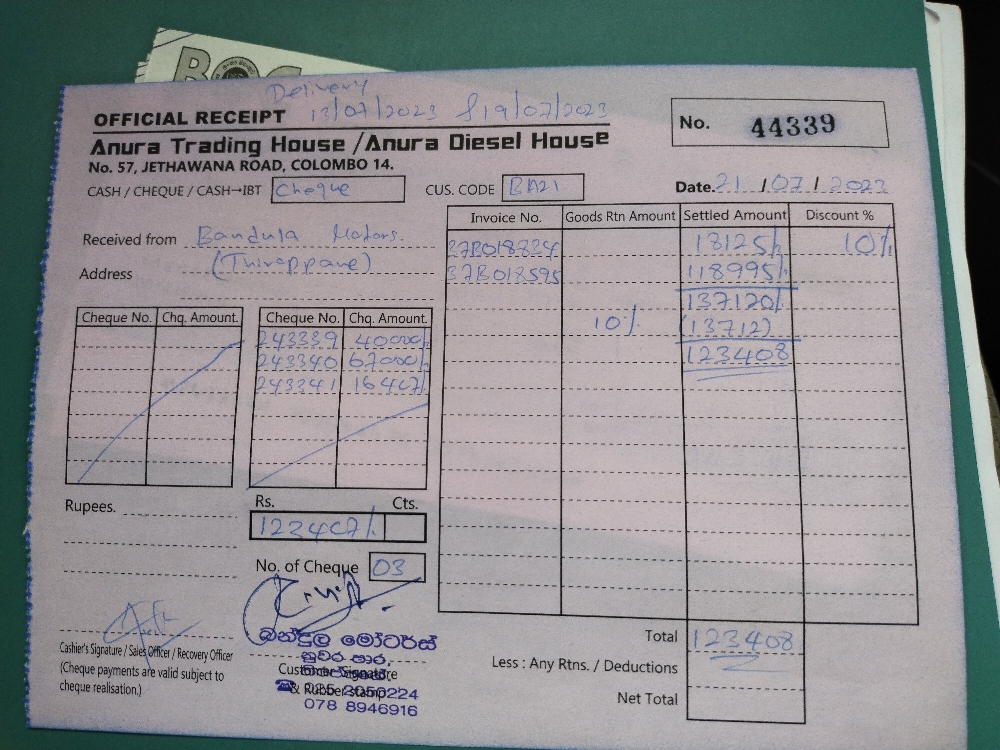 BOC
Delivery
OFFICIAL RECEIPT 13/07/2023 & 19/07/2023
Anura Trading House /Anura Diesel House
No. 57, JETHAWANA ROAD, COLOMBO 14.
No. 44339
CASH / CHEQUE / CASH→IBT Cheque CUS. CODE BA21 Date. 21 / 07 / 2023
Received from Bandula Motors.
Address (Thirappane)
Invoice No. Goods Rtn Amount Settled Amount Discount %
37B018834 18125/- 10%
37B018595 118995/-
137120/-
10% (13712)
123408
Cheque No. Chq. Amount. Cheque No. Chq. Amount.
243339 40000/-
243340 67000/-
243341 16407/-
Rupees. Rs. Cts.
123407/-
No. of Cheque 03
බන්දුල මෝටර්ස්
නුවර පාර,
Cashier's Signature / Sales Officer / Recovery Officer
(Cheque payments are valid subject to
cheque realisation.)
Customer Signature
& Rubber stamp
025 2050224
078 8946916
Total 123408
Less : Any Rtns. / Deductions
Net Total